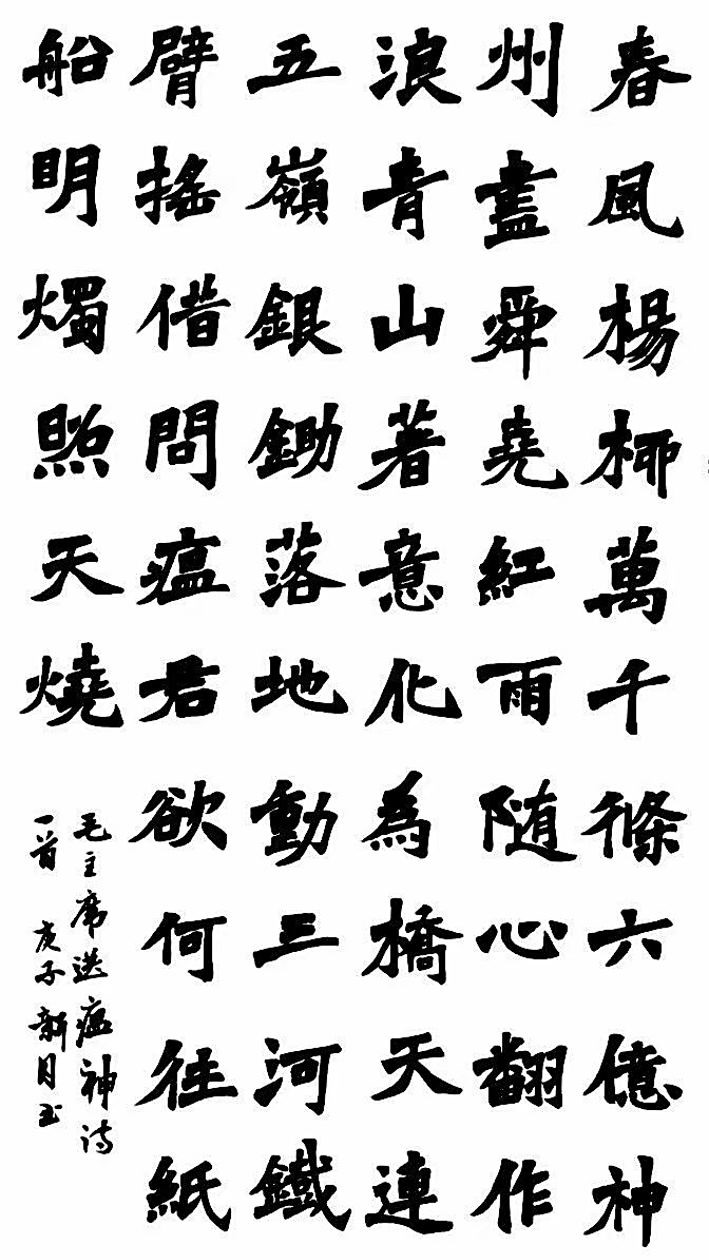 春風楊栁萬千條六億神
州盡舜堯紅雨随心翻作
浪青山著意化為橋天連
五嶺銀鋤落地動三河鐵
臂搖借問瘟君欲何往紙
船明燭照天燒
毛主席送瘟神诗
一首 庚子新月玉